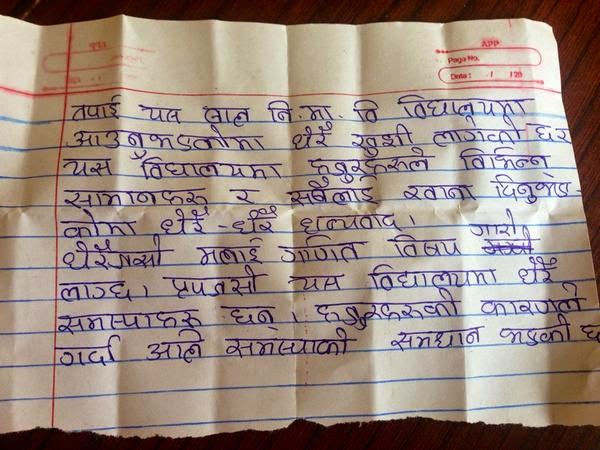 APP
Page No.
Date: / /20
तपाई यस लाल नि. मा. वि विद्यालयमा
आउनुभएकोमा धेरै खुशी लागेको छ
यस विद्यालयमा हजुरहरूले विभिन्न
सामानहरू र सबैलाई खाना दिनुभए-
कोमा धेरै-धेरै धन्यवाद।
धेरैजसो मलाई गणित विषय गारो
लाग्छ। प्रायजसो यस विद्यालयमा धेरै
समस्याहरू छन्। हजुरहरूको कारणले
गर्दा अलि समस्याको समधान भएको छ